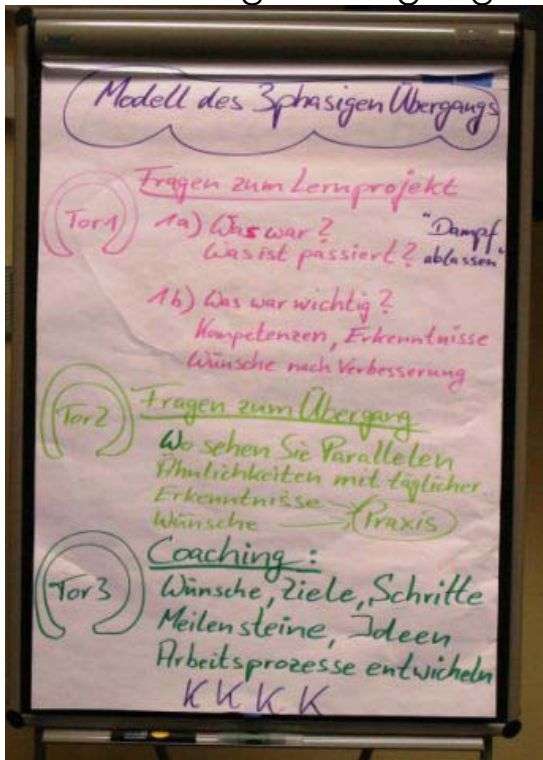 Modell des 3phasigen Übergangs
Fragen zum Lernprojekt
Tor 1
1a) Was war?
Was ist passiert?
"Dampf
ablassen"
1b) Was war wichtig?
Kompetenzen, Erkenntnisse
Wünsche nach Verbesserung
Tor 2
Fragen zum Übergang
Wo sehen Sie Parallelen
Ähnlichkeiten mit täglicher
Erkenntnisse
Wünsche
Praxis
Tor 3
Coaching:
Wünsche, Ziele, Schritte
Meilensteine, Ideen
Arbeitsprozesse entwickeln
K K K K